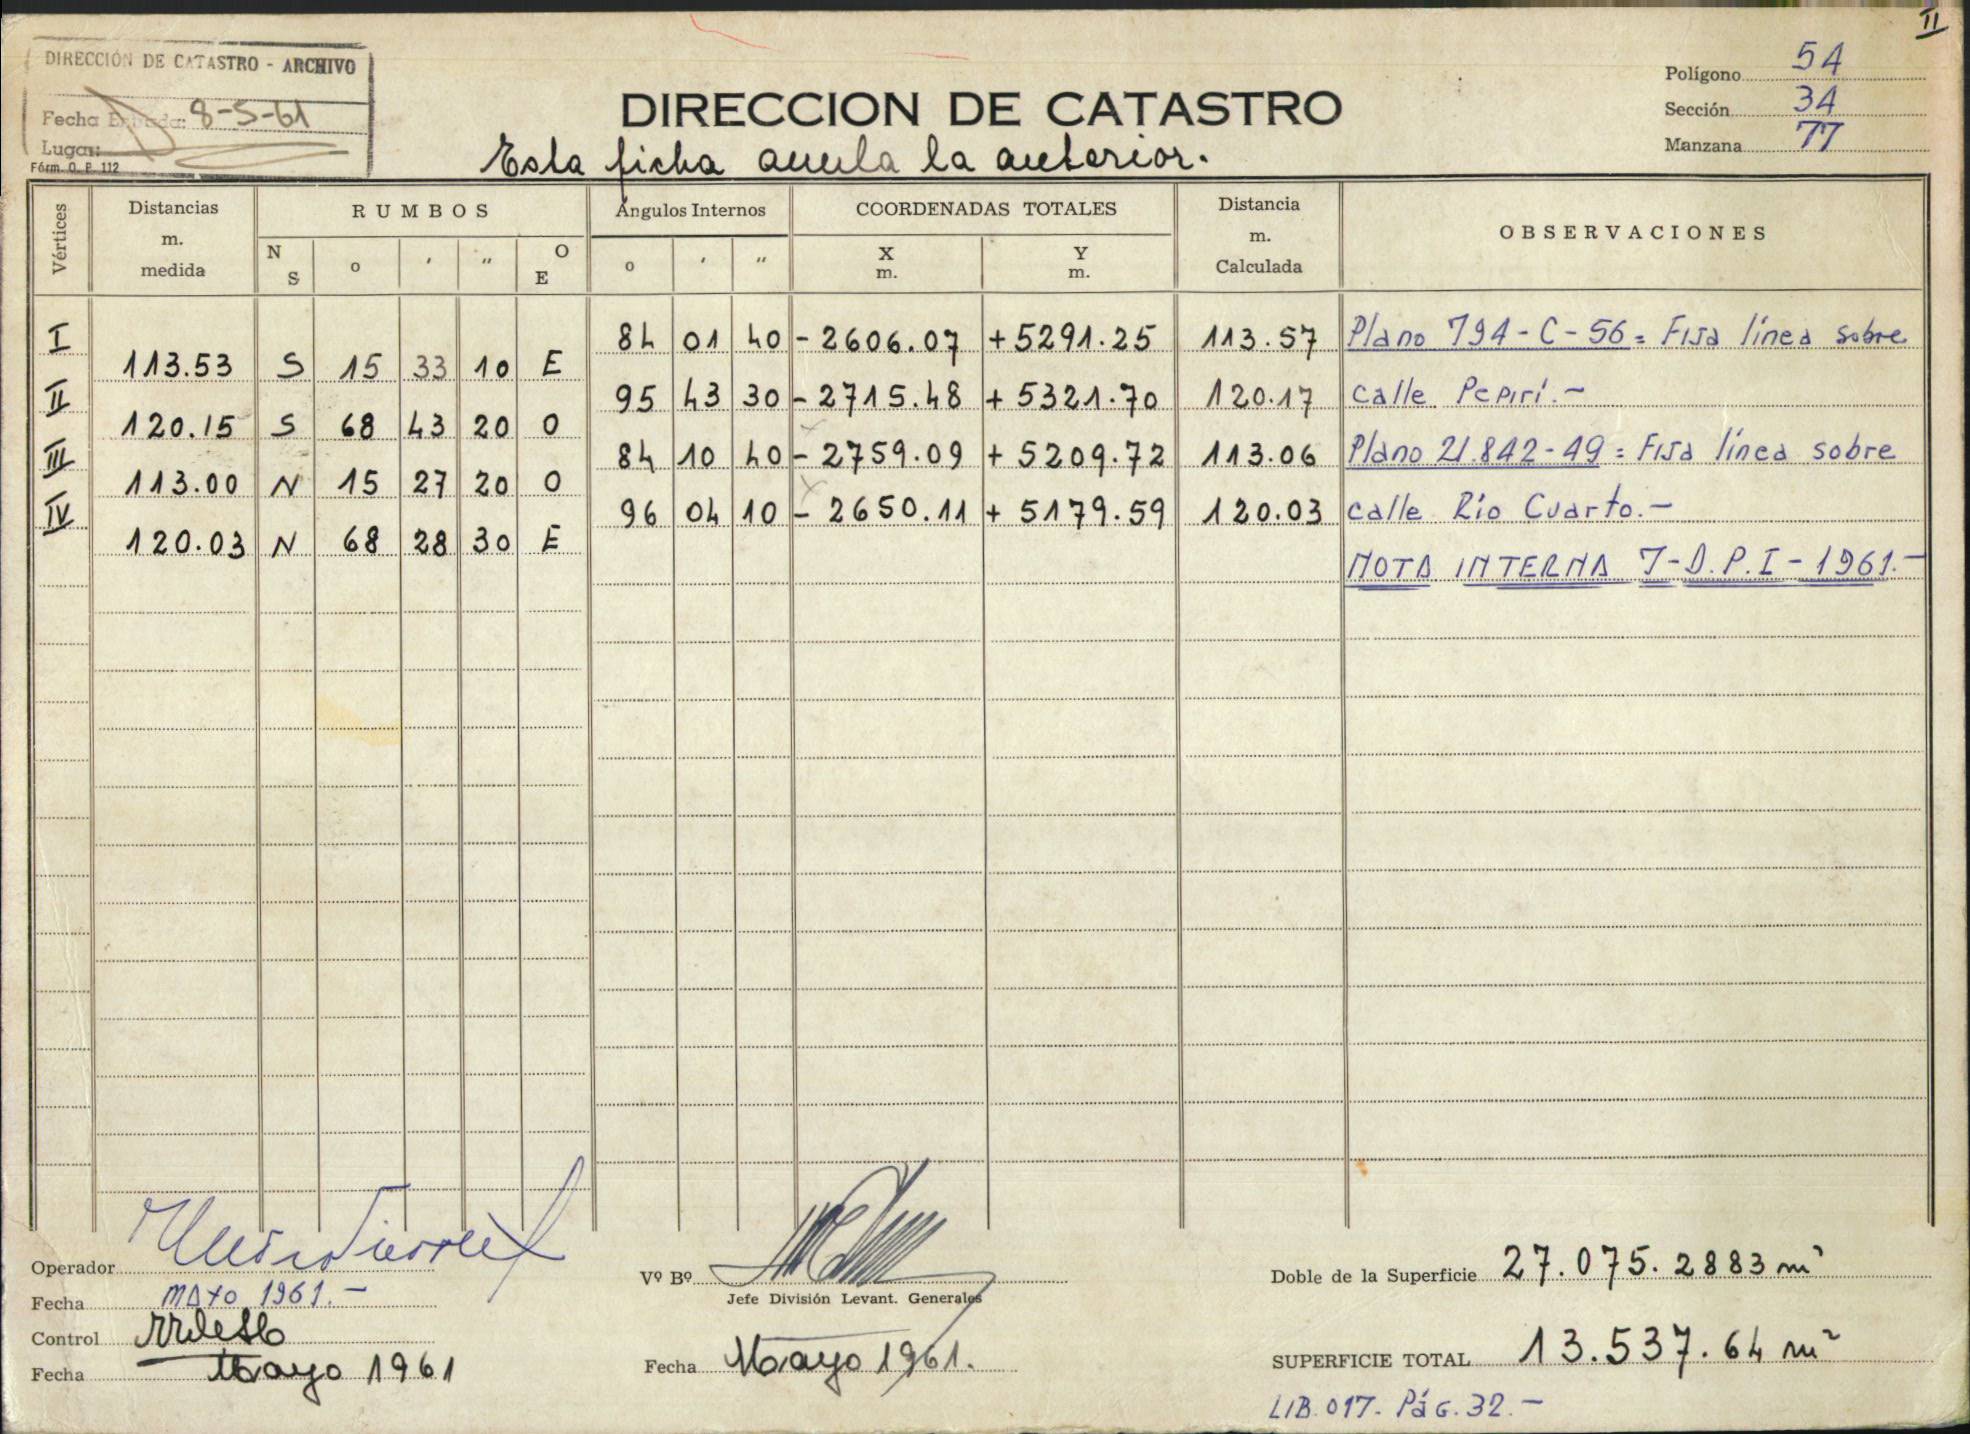 II
DIRECCIÓN DE CATASTRO - ARCHIVO
Fecha Entrada: 8-5-61
Lugar:
Fórm. O. P. 112
DIRECCION DE CATASTRO
Esta ficha anula la anterior.
Polígono 54
Sección 34
Manzana 77
Vértices
Distancias m. medida
RUMBOS
N S o ' " O E
Ángulos Internos
o ' "
COORDENADAS TOTALES
X m. Y m.
Distancia m. Calculada
OBSERVACIONES
I 84 01 40 - 2606.07 + 5291.25 113.57 Plano 794-C-56 = Fija línea sobre
113.53 S 15 33 10 E
II 95 43 30 - 2715.48 + 5321.70 120.17 calle Pepirí.-
120.15 S 68 43 20 O
III 84 10 40 - 2759.09 + 5209.72 113.06 Plano 21.842-49 = Fija línea sobre
113.00 N 15 27 20 O
IV 96 04 10 - 2650.11 + 5179.59 120.03 calle Río Cuarto.-
120.03 N 68 28 30 E
NOTA INTERNA 7-D.P.I-1961.-
Operador
Fecha MAYO 1961.-
Control
Fecha Mayo 1961
Vº Bº
Jefe División Levant. Generales
Fecha Mayo 1961.
Doble de la Superficie 27.075.2883 m²
SUPERFICIE TOTAL 13.537.64 m²
LIB. 017- Pág. 32.-